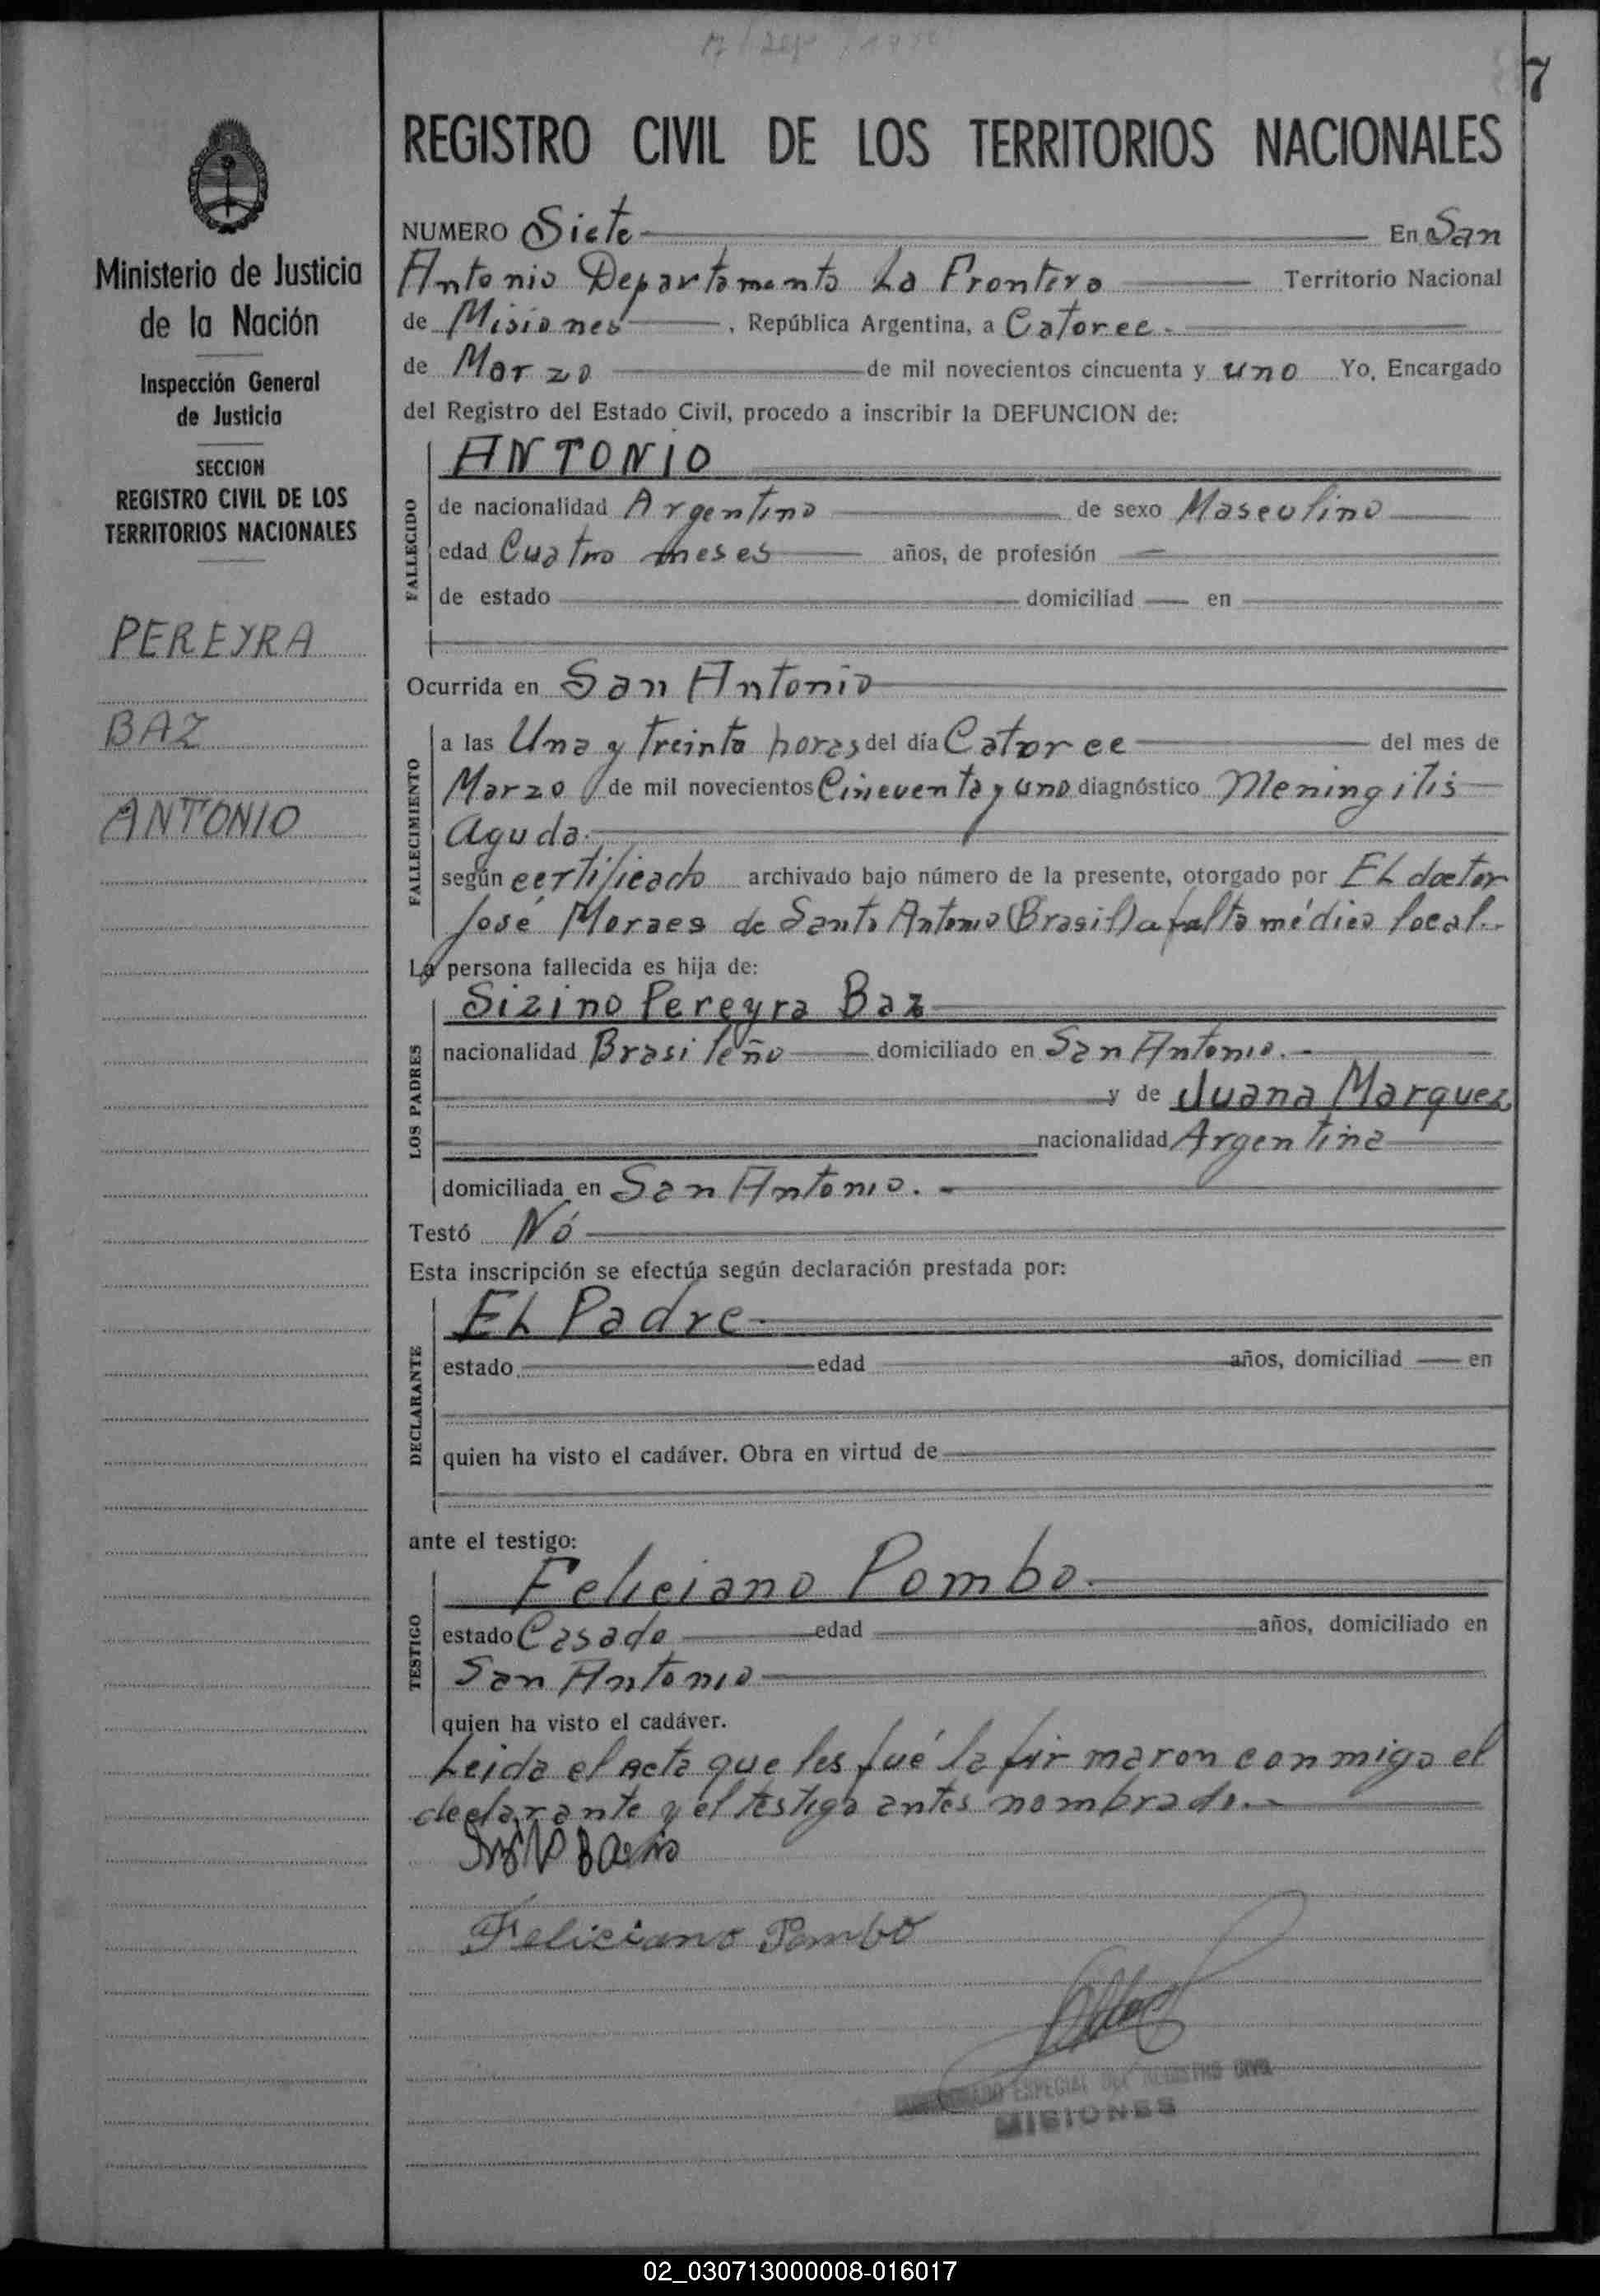 7
Ministerio de Justicia
de la Nación
Inspección General
de Justicia
SECCION
REGISTRO CIVIL DE LOS
TERRITORIOS NACIONALES
PEREYRA
BAZ
ANTONIO
REGISTRO CIVIL DE LOS TERRITORIOS NACIONALES
NUMERO Siete En San
Antonio Departamento La Frontera Territorio Nacional
de Misiones, República Argentina, a Catorce.
de Marzo de mil novecientos cincuenta y uno Yo, Encargado
del Registro del Estado Civil, procedo a inscribir la DEFUNCION de:
FALLECIDO
ANTONIO
de nacionalidad Argentino de sexo Masculino
edad Cuatro meses años, de profesión
de estado domiciliad en
Ocurrida en San Antonio
FALLECIMIENTO
a las Una y treinta horas del día Catorce del mes de
Marzo de mil novecientos Cincuenta y uno diagnóstico Meningitis
Aguda.
según certificado archivado bajo número de la presente, otorgado por El doctor
José Moraes de Santo Antonio (Brasil) a falta médico local.
La persona fallecida es hija de:
LOS PADRES
Sizino Pereyra Baz
nacionalidad Brasileño domiciliado en San Antonio.
y de Juana Marquez
nacionalidad Argentina
domiciliada en San Antonio.
Testó Nó
Esta inscripción se efectúa según declaración prestada por:
DECLARANTE
El Padre
estado edad años, domiciliad en
quien ha visto el cadáver. Obra en virtud de
ante el testigo:
TESTIGO
Feliciano Pombo.
estado Casado edad años, domiciliado en
San Antonio
quien ha visto el cadáver.
Leida el acta que les fué la firmaron conmigo el
declarante y el testigo antes nombrado.
Feliciano Pombo
ESPECIAL DEL REGISTRO CIVIL
MISIONES
02_030713000008-016017